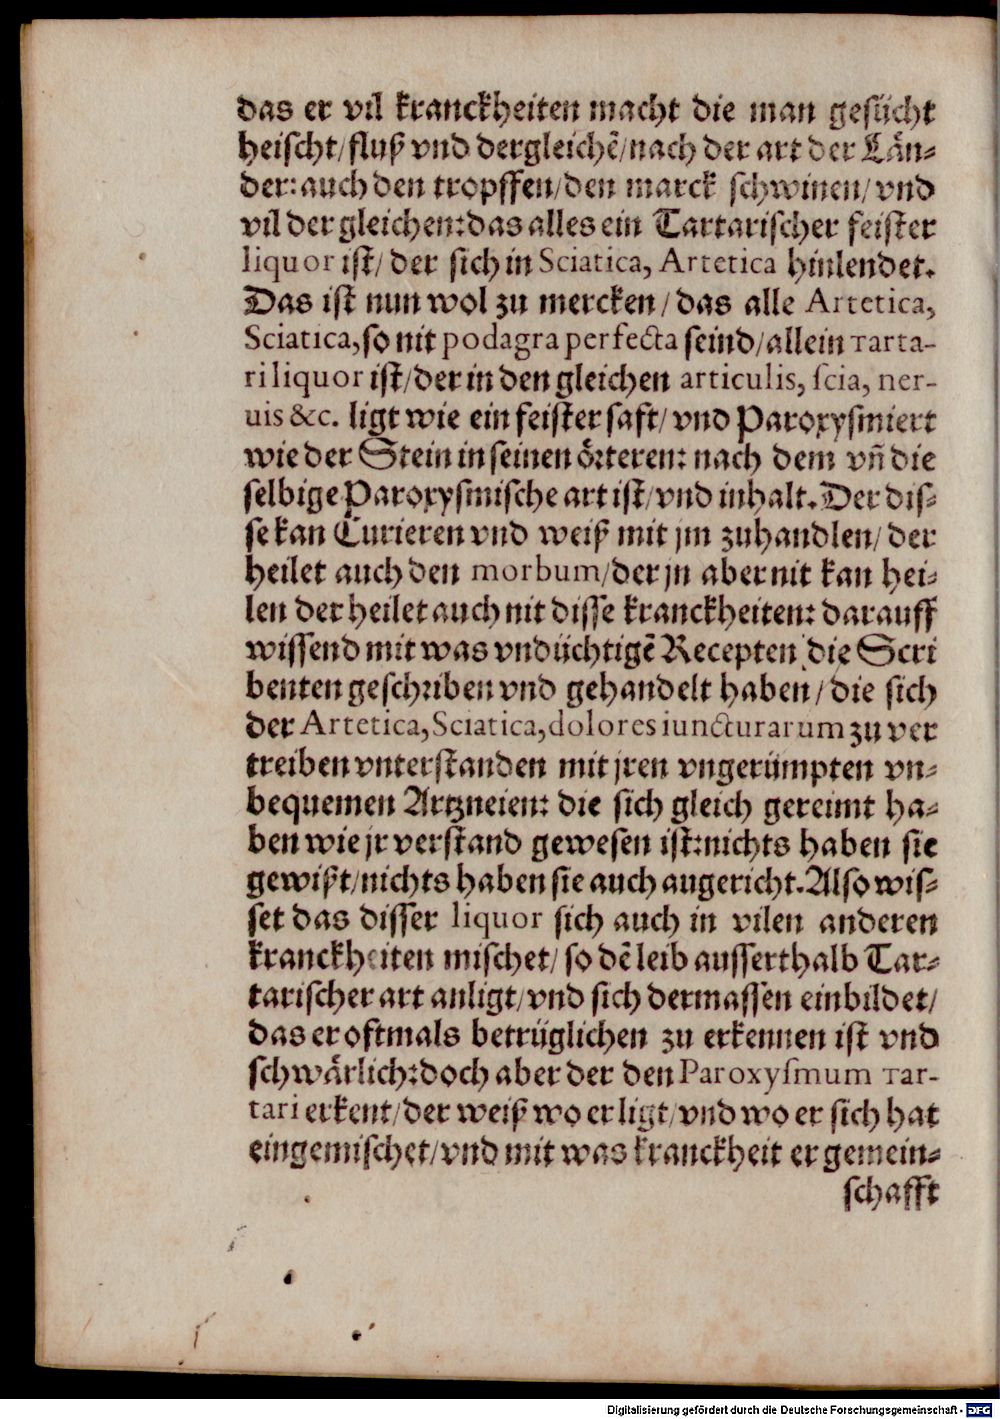 das er vil kranckheiten macht die man gesücht
heischt/fluß vnd dergleichẽ/nach der art der Län⸗
der: auch den tropffen/den marck schwinen/vnd
vil der gleichen: das alles ein Tartarischer feister
liquor ist/ der sich in Sciatica, Artetica hinlendet.
Das ist nun wol zu mercken/das alle Artetica,
Sciatica, so nit podagra perfecta seind/allein Tarta-
ri liquor ist/der in den gleichen articulis, scia, ner-
uis &c. ligt wie ein feister saft/ vnd Paroxysmiert
wie der Stein in seinen örteren: nach dem vñ die
selbige Paroxysmische art ist/vnd inhalt. Der dis⸗
se kan Curieren vnd weiß mit jm zuhandlen/ der
heilet auch den morbum/der jn aber nit kan hei⸗
len der heilet auch nit disse kranckheiten: darauff
wissend mit was vndüchtigẽ Recepten die Scri
benten geschriben vnd gehandelt haben/die sich
der Artetica, Sciatica, dolores iuncturarum zu ver
treiben vnterstanden mit jren vngerümpten vn⸗
bequemen Artzneien: die sich gleich gereimt ha⸗
ben wie jr verstand gewesen ist: nichts haben sie
gewißt/nichts haben sie auch augericht. Also wis⸗
set das disser liquor sich auch in vilen anderen
kranckheiten mischet/ so dẽ leib ausserthalb Tar⸗
tarischer art anligt/vnd sich dermassen einbildet/
das er oftmals betrüglichen zu erkennen ist vnd
schwärlich: doch aber der den Paroxysmum Tar-
tari erkent/der weiß wo er ligt/vnd wo er sich hat
eingemischet/vnd mit was kranckheit er gemein⸗
schafft
Digitalisierung gefördert durch die Deutsche Forschungsgemeinschaft - DFG